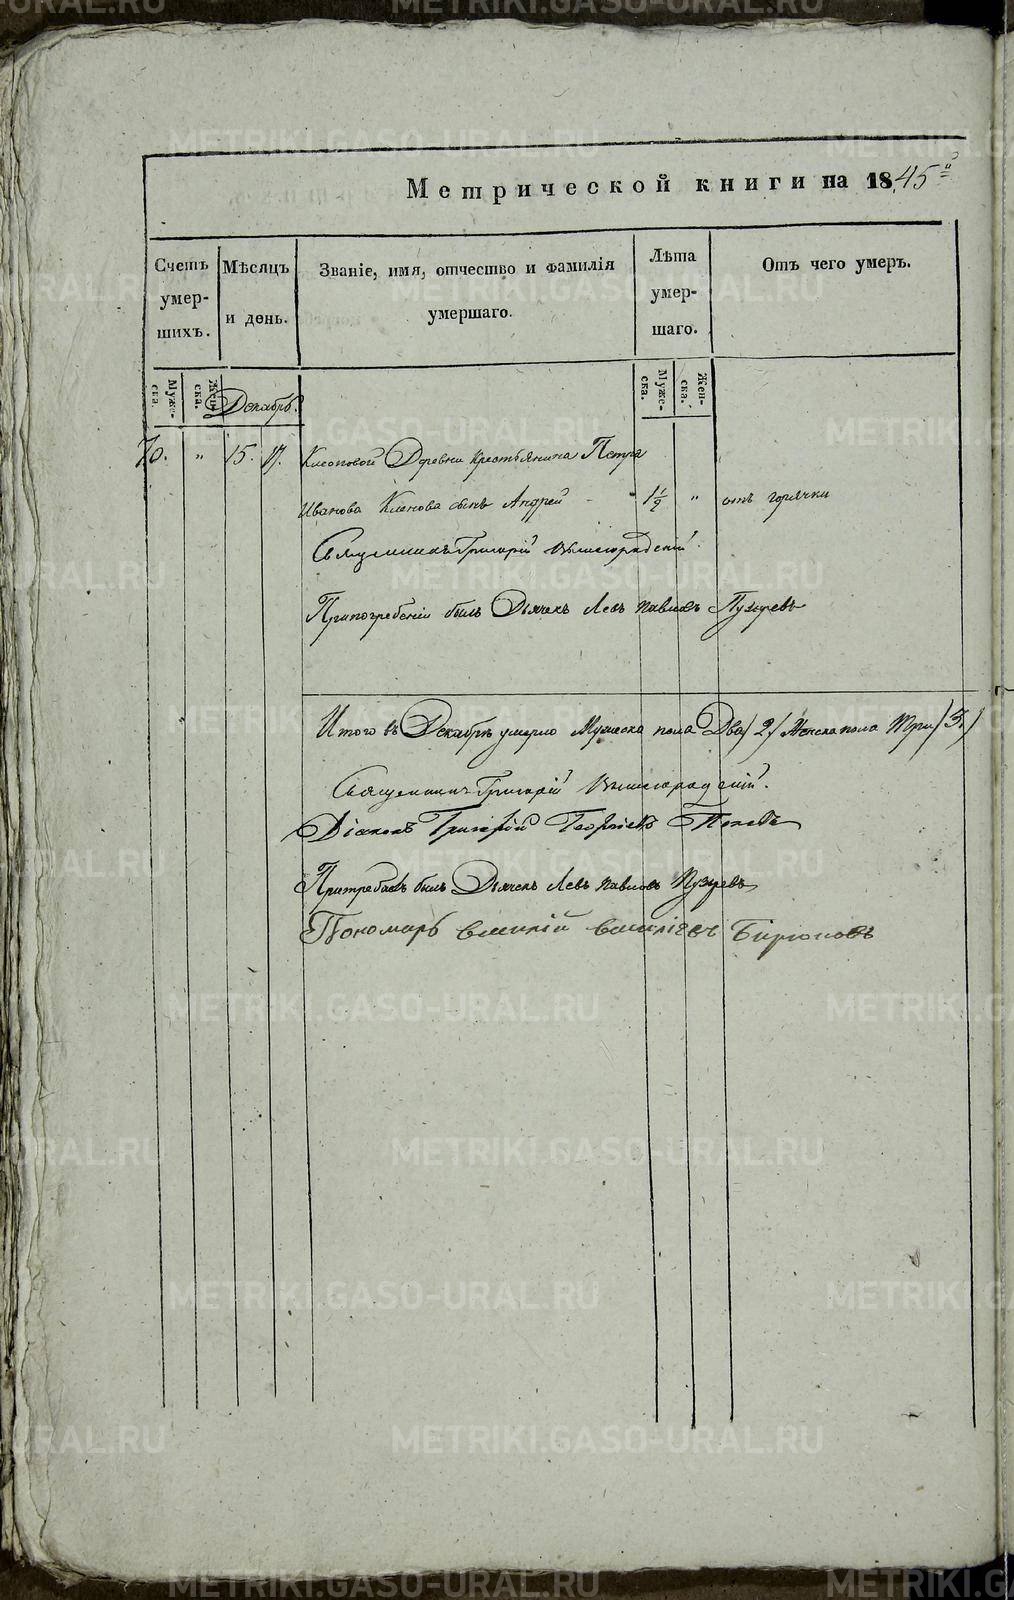 Метрической книги на 1845й
Счетъ умер-шихъ.
Мѣсяцъ и день.
Званіе, имя, отчество и фамилія умершаго.
Лѣта умер-шаго.
Отъ чего умеръ.
Муже-ска.
Жен-ска.
Муже-ска.
Жен-ска.
Декабрь.
70. " 15. 17. Клеоповой Деревни крестьянина Петра
Иванова сынъ Андрей - 1 1/2 " отъ горячки
Священникъ Григорій Вышегородскій.
При погребеніи былъ Дьячекъ Левъ Павловъ Пузыревъ
Итого въ Декабрѣ умерло Мужеска пола Два /2/ Женска пола Три /3./
Священникъ Григорій Вышегородскій.
Діаконъ Григорій Георгіевъ Поповъ
былъ Дьячекъ Левъ Павловъ Пузыревъ
Пономарь Василій Василіевъ Бирюковъ
METRIKI.GASO-URAL.RU